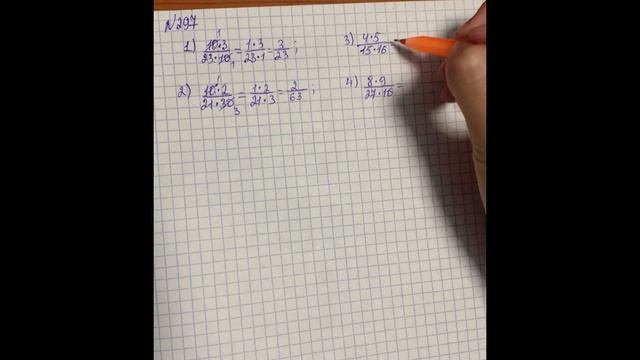 N297
1) 10·3/23·10 = 1·3/23·1 = 3/23 ;
2) 10·2/21·30 = 1·2/21·3 = 2/63 ;
3) 4·5/15·16
4) 8·9/27·16 =